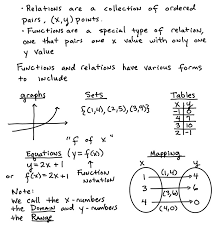 • Relations are a collection of ordered
pairs, (x,y) points.
• Functions are a special type of relation,
one that pairs one x value with only one
y value
Functions and relations have various forms
to include
graphs Sets Tables
{(1,4),(2,5),(3,9)}
x y
4 7
3 10
2 -1
"f of x"
Equations (y = f(x)) Mapping
y = 2x + 1
or f(x) = 2x + 1
Function
Notation
x y
1 (1,4) 4
3 (3,6) 6
4 (4,0) 0
Note:
We call the x-numbers
the Domain and y-numbers
the Range